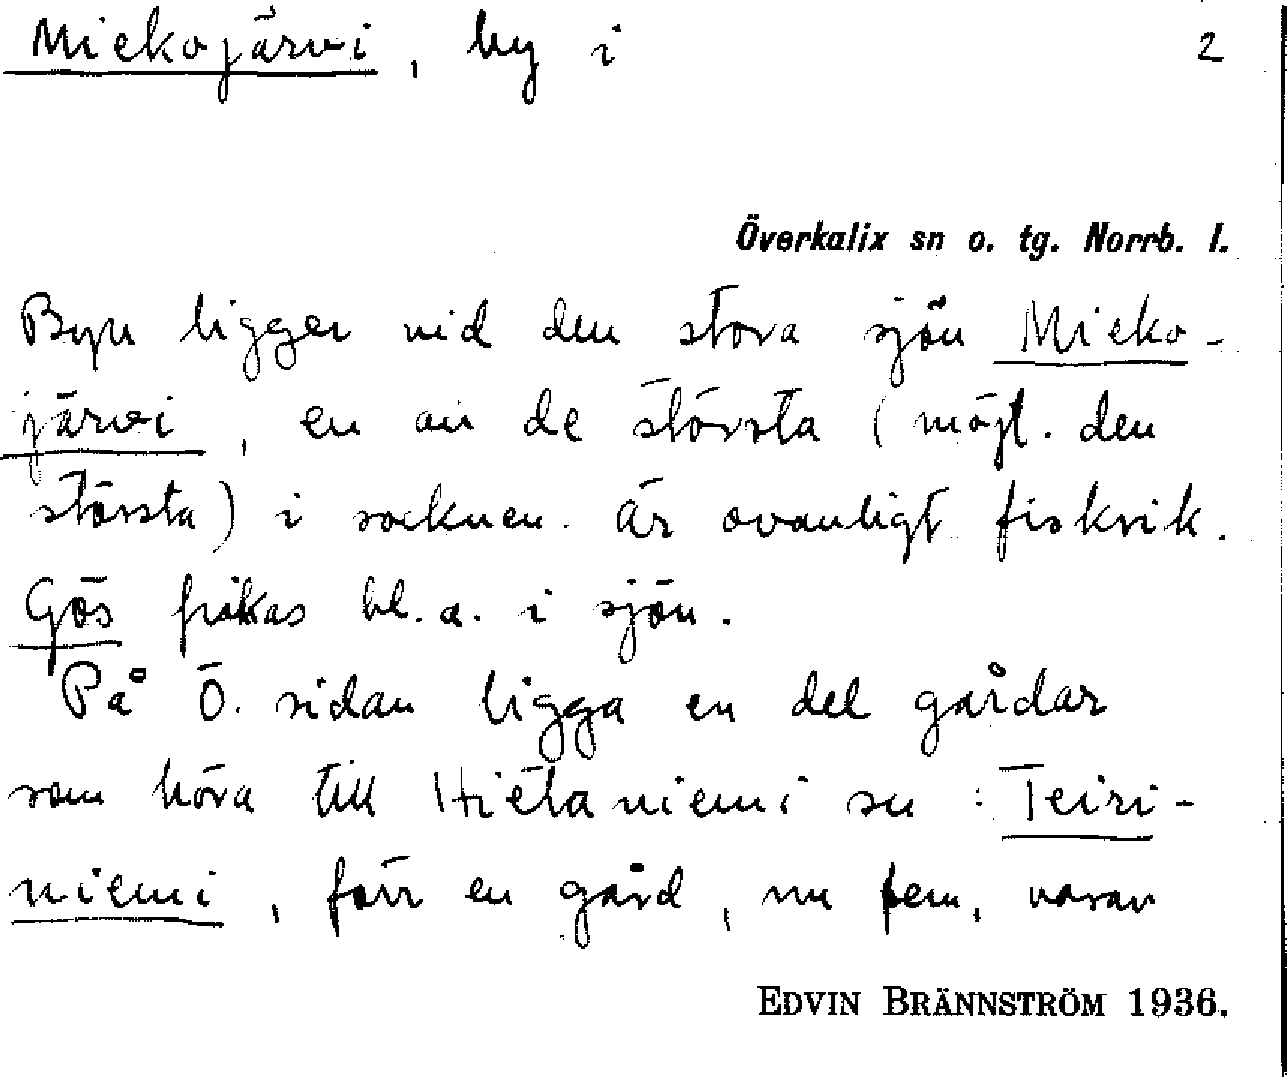 Miekojärvi, by i 2
Överkalix sn o. tg. Norrb. l.
Byn ligger vid den stora sjön Mieko-
järvi, en av de största (mögl. den
största) i socknen. Är ovanligt fiskrik.
Gös fiskas bl.a. i sjön.
På Ö. sidan ligga en del gårdar
som höra till Hietaniemi sn: Teiri-
niemi, förr en gård, nu fem, varav
EDVIN BRÄNNSTRÖM 1936.